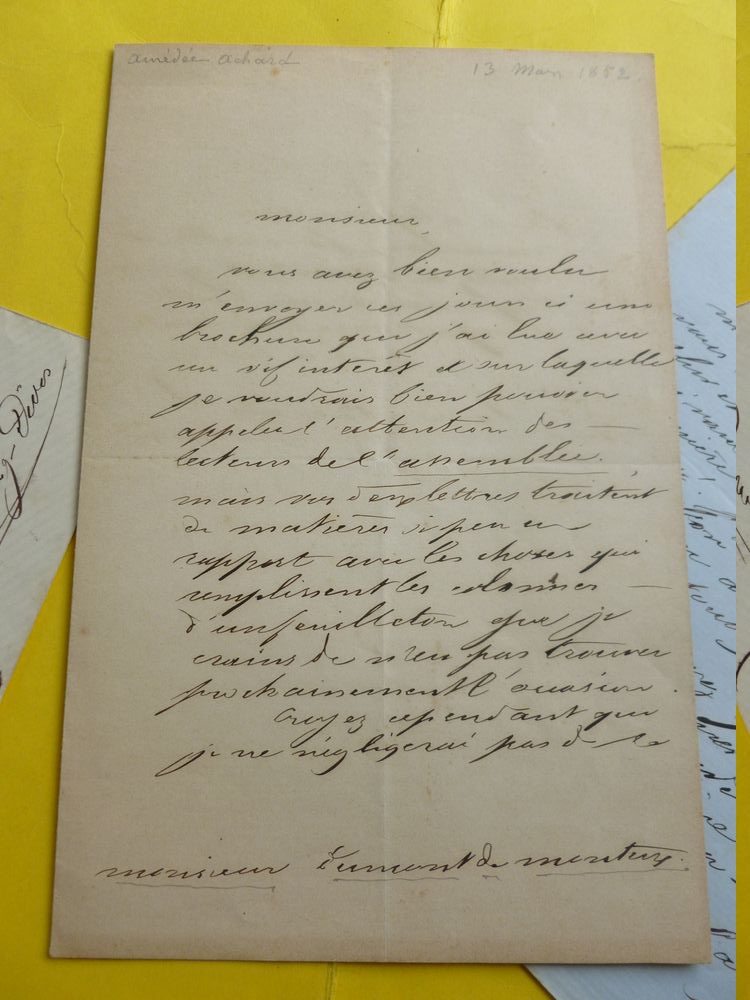 amédée achard
13 Mars 1852.
monsieur,
vous avez bien voulu
m'envoyer ces jours ci une
brochure que j'ai lue avec
un vif intérêt et sur laquelle
je voudrais bien pouvoir
appeler l'attention des
lecteurs de l'assemblée.
mais vos deux lettres traitent
de matières si peu en
rapport avec les choses qui
remplissent les colonnes
d'un feuilleton que je
crains de n'en pas trouver
prochainement l'occasion.
Croyez cependant que
je ne négligerai pas de le
monsieur Dumont de monteux.